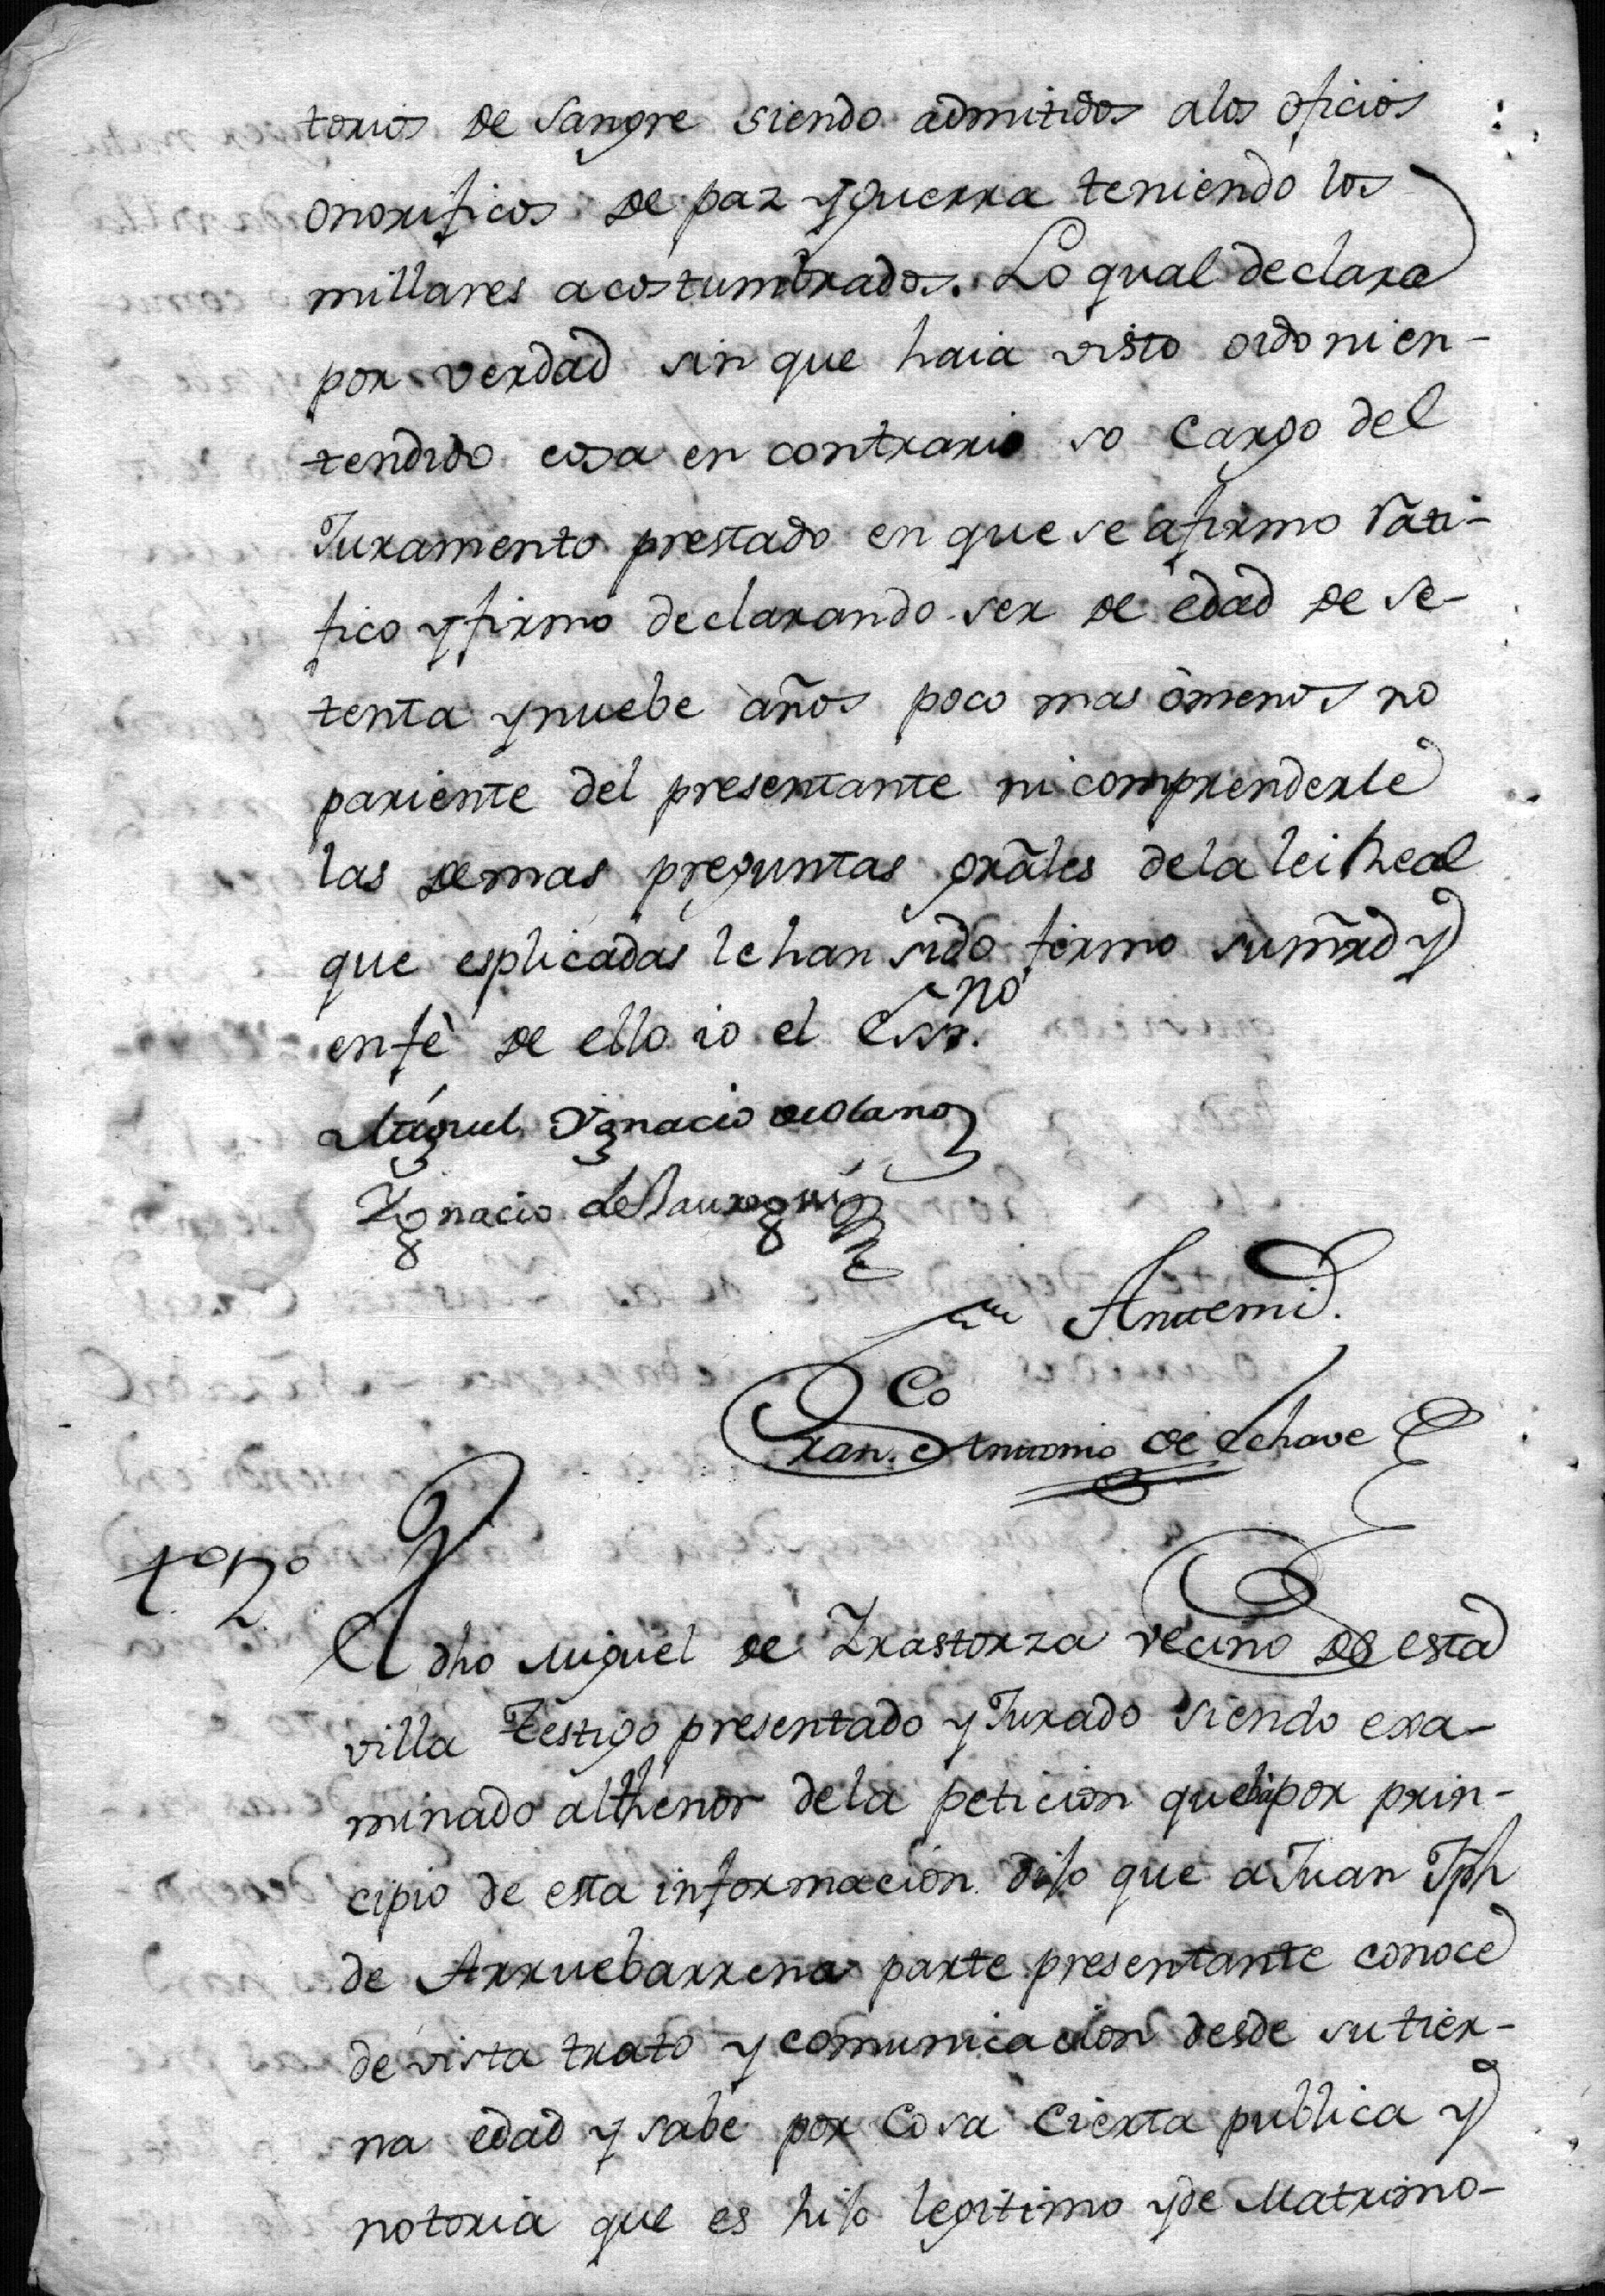 torios de sangre siendo admitidos alos oficios
onorificos de paz y guerra teniendo los
millares acostumbrados. Lo qual declara
por verdad sin que haia visto oido ni en-
tendido cosa en contrario so cargo del
Juramento prestado en que se afirmo rati-
fico y firmo declarando ser de edad de se-
tenta y nuebe años poco mas ò menos no
pariente del presentante ni comprenderle
las demas preguntas grãles dela lei Real
que esplicadas le han sido firmo su mrd y
en fè de ello io el Essno.
Miguel Ygnacio de Olano
Ygnacio de
Antemi.
Franco. Antonio de Echave
to. 2o.
El dho Miguel de Irastorza vecino de esta
villa Testigo presentado y Jurado siendo exa-
minado al thenor dela peticion que ba por prin-
cipio de esta informacion dijo que a Juan Jph
de Arruebarrena parte presentante conoce
de vista trato y comunicacion desde su tier-
na edad y sabe por cosa cierta publica y
notoria que es hijo legitimo y de Matrimo-